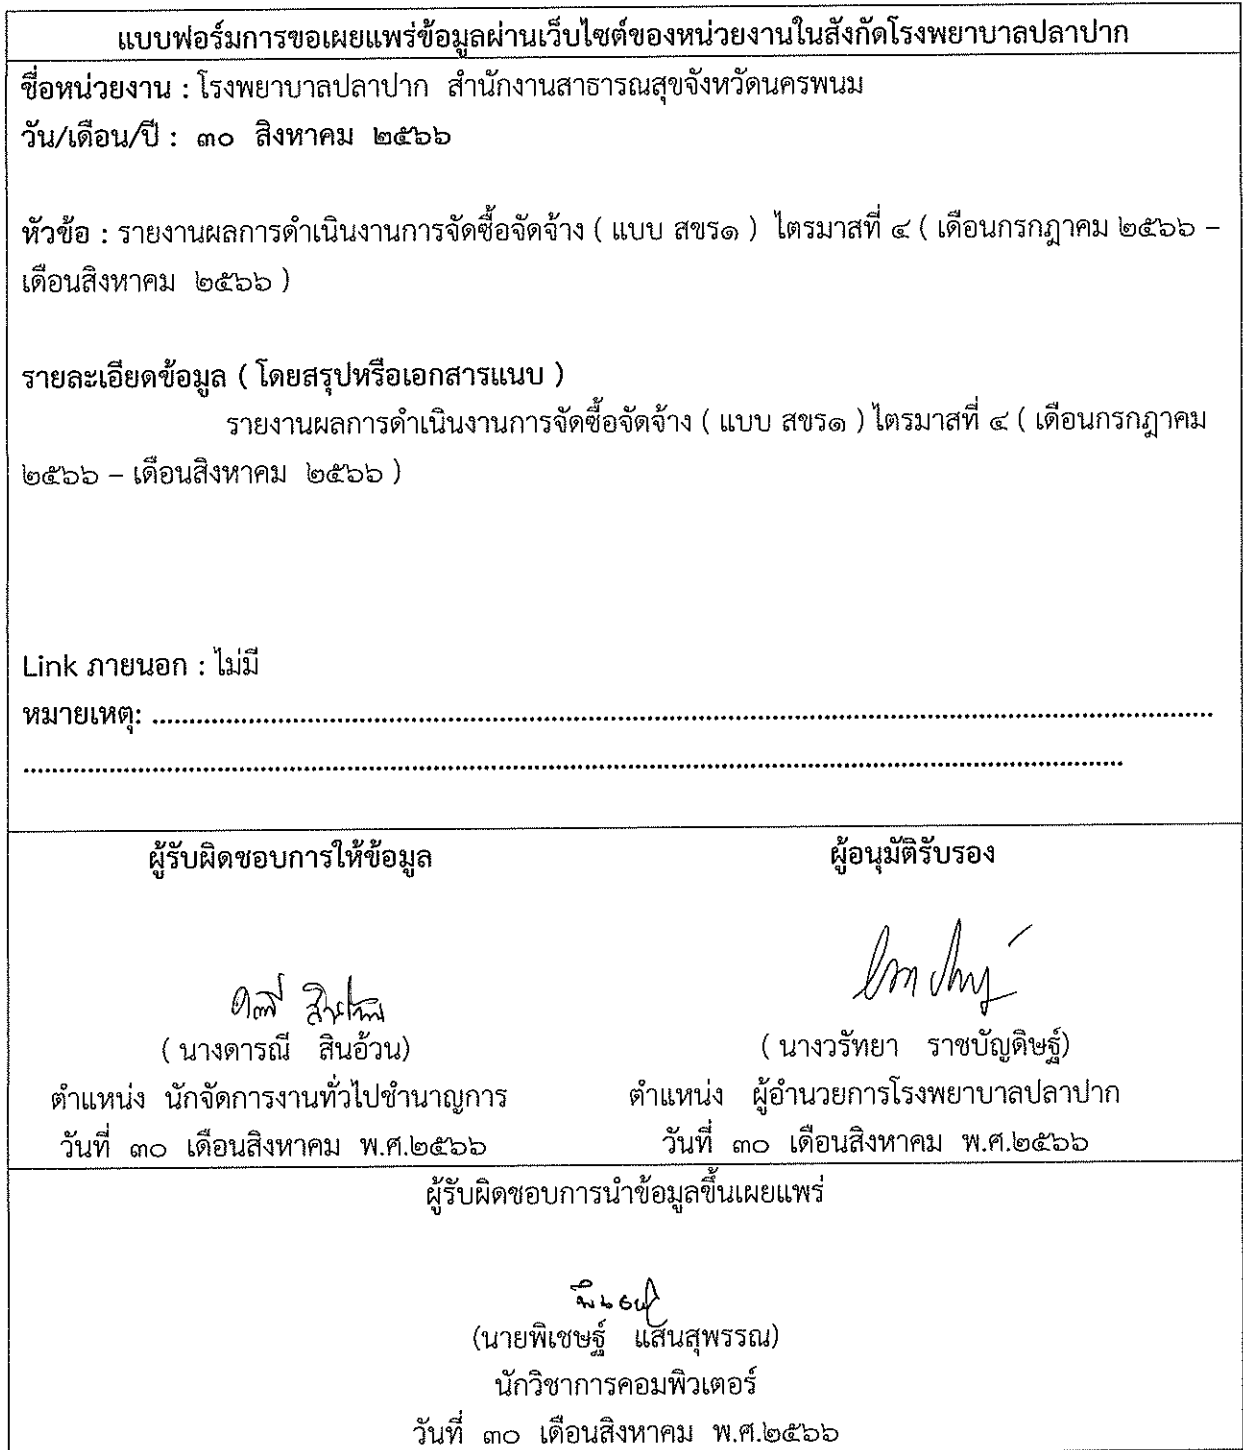 แบบฟอร์มการขอเผยแพร่ข้อมูลผ่านเว็บไซต์ของหน่วยงานในสังกัดโรงพยาบาลปลาปาก
ชื่อหน่วยงาน : โรงพยาบาลปลาปาก สำนักงานสาธารณสุขจังหวัดนครพนม
วัน/เดือน/ปี : ๓๐ สิงหาคม ๒๕๖๖
หัวข้อ : รายงานผลการดำเนินงานการจัดซื้อจัดจ้าง ( แบบ สขร๑ ) ไตรมาสที่ ๔ ( เดือนกรกฎาคม ๒๕๖๖ –
เดือนสิงหาคม ๒๕๖๖ )
รายละเอียดข้อมูล ( โดยสรุปหรือเอกสารแนบ )
รายงานผลการดำเนินงานการจัดซื้อจัดจ้าง ( แบบ สขร๑ ) ไตรมาสที่ ๔ ( เดือนกรกฎาคม
๒๕๖๖ – เดือนสิงหาคม ๒๕๖๖ )
Link ภายนอก : ไม่มี
หมายเหตุ: ........................................................................
........................................................................
ผู้รับผิดชอบการให้ข้อมูล
( นางดารณี สินอ้วน)
ตำแหน่ง นักจัดการงานทั่วไปชำนาญการ
วันที่ ๓๐ เดือนสิงหาคม พ.ศ.๒๕๖๖
ผู้อนุมัติรับรอง
( นางวรัทยา ราชบัญดิษฐ์)
ตำแหน่ง ผู้อำนวยการโรงพยาบาลปลาปาก
วันที่ ๓๐ เดือนสิงหาคม พ.ศ.๒๕๖๖
ผู้รับผิดชอบการนำข้อมูลขึ้นเผยแพร่
(นายพิเชษฐ์ แสนสุพรรณ)
นักวิชาการคอมพิวเตอร์
วันที่ ๓๐ เดือนสิงหาคม พ.ศ.๒๕๖๖